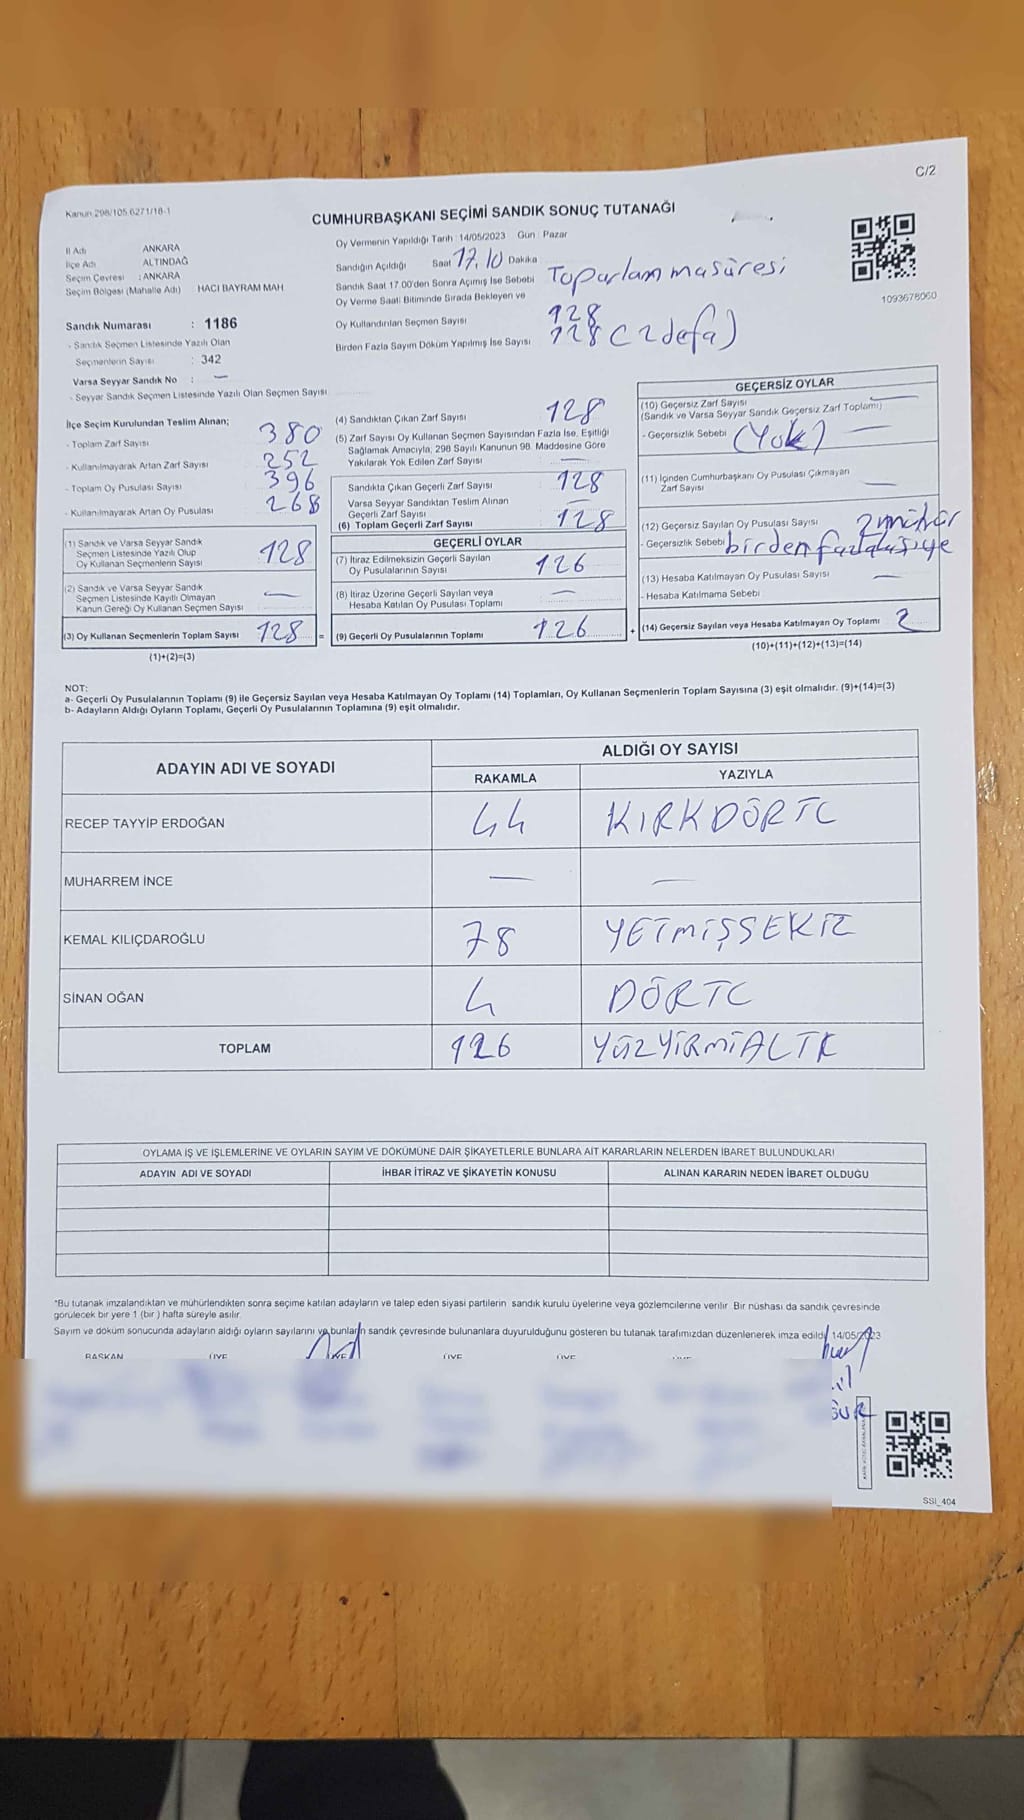 C/2
Kanun 298/105 6271/18-1
CUMHURBAŞKANI SEÇİMİ SANDIK SONUÇ TUTANAĞI
İl Adı ANKARA
İlçe Adı ALTINDAĞ
Seçim Çevresi : ANKARA
Seçim Bölgesi (Mahalle Adı) HACI BAYRAM MAH
Sandık Numarası : 1186
- Sandık Seçmen Listesinde Yazılı Olan
Seçmenlerin Sayısı : 342
Varsa Seyyar Sandık No : —
- Seyyar Sandık Seçmen Listesinde Yazılı Olan Seçmen Sayısı
Oy Vermenin Yapıldığı Tarih : 14/05/2023 Gün : Pazar
Sandığın Açıldığı Saat 17.10 Dakika
Sandık Saat 17.00'den Sonra Açımış İse Sebebi Toparlanmasüresi
Oy Verme Saati Bitiminde Sırada Bekleyen ve
Oy Kullandırılan Seçmen Sayısı 128
Birden Fazla Sayım Döküm Yapılmış İse Sayısı 128 (2 defa)
1093678060
İlçe Seçim Kurulundan Teslim Alınan;
- Toplam Zarf Sayısı 380
- Kullanılmayarak Artan Zarf Sayısı 252
- Toplam Oy Pusulası Sayısı 396
- Kullanılmayarak Artan Oy Pusulası 268
(1) Sandık ve Varsa Seyyar Sandık
Seçmen Listesinde Yazılı Olup
Oy Kullanan Seçmenlerin Sayısı 128
(2) Sandık ve Varsa Seyyar Sandık
Seçmen Listesinde Kayıtlı Olmayan
Kanun Gereği Oy Kullanan Seçmen Sayısı —
(3) Oy Kullanan Seçmenlerin Toplam Sayısı 128 =
(1)+(2)=(3)
(4) Sandıktan Çıkan Zarf Sayısı 128
(5) Zarf Sayısı Oy Kullanan Seçmen Sayısından Fazla İse, Eşitliği
Sağlamak Amacıyla, 298 Sayılı Kanunun 98. Maddesine Göre
Yakılarak Yok Edilen Zarf Sayısı —
Sandıkta Çıkan Geçerli Zarf Sayısı 128
Varsa Seyyar Sandıktan Teslim Alınan
Geçerli Zarf Sayısı —
(6) Toplam Geçerli Zarf Sayısı 128
GEÇERLİ OYLAR
(7) İtiraz Edilmeksizin Geçerli Sayılan
Oy Pusulalarının Sayısı 126
(8) İtiraz Üzerine Geçerli Sayılan veya
Hesaba Katılan Oy Pusulası Toplamı —
(9) Geçerli Oy Pusulalarının Toplamı 126 +
GEÇERSİZ OYLAR
(10) Geçersiz Zarf Sayısı
(Sandık ve Varsa Seyyar Sandık Geçersiz Zarf Toplamı) —
- Geçersizlik Sebebi (Yok)
(11) İçinden Cumhurbaşkanı Oy Pusulası Çıkmayan
Zarf Sayısı —
(12) Geçersiz Sayılan Oy Pusulası Sayısı 2 mühür
- Geçersizlik Sebebi birden
(13) Hesaba Katılmayan Oy Pusulası Sayısı —
- Hesaba Katılmama Sebebi
(14) Geçersiz Sayılan veya Hesaba Katılmayan Oy Toplamı 2
(10)+(11)+(12)+(13)=(14)
NOT:
a- Geçerli Oy Pusulalarının Toplamı (9) ile Geçersiz Sayılan veya Hesaba Katılmayan Oy Toplamı (14) Toplamları, Oy Kullanan Seçmenlerin Toplam Sayısına (3) eşit olmalıdır. (9)+(14)=(3)
b- Adayların Aldığı Oyların Toplamı, Geçerli Oy Pusulalarının Toplamına (9) eşit olmalıdır.
ADAYIN ADI VE SOYADI ALDIĞI OY SAYISI
RAKAMLA YAZIYLA
RECEP TAYYİP ERDOĞAN 44 KIRKDÖRT
MUHARREM İNCE — —
KEMAL KILIÇDAROĞLU 78 YETMİŞSEKİZ
SİNAN OĞAN 4 DÖRT
TOPLAM 126 YÜZYİRMİALTI
OYLAMA İŞ VE İŞLEMLERİNE VE OYLARIN SAYIM VE DÖKÜMÜNE DAİR ŞİKAYETLERLE BUNLARA AİT KARARLARIN NELERDEN İBARET BULUNDUKLARI
ADAYIN ADI VE SOYADI İHBAR İTİRAZ VE ŞİKAYETİN KONUSU ALINAN KARARIN NEDEN İBARET OLDUĞU
*Bu tutanak imzalandıktan ve mühürlendikten sonra seçime katılan adayların ve talep eden siyasi partilerin sandık kurulu üyelerine veya gözlemcilerine verilir. Bir nüshası da sandık çevresinde
görülecek bir yere 1 (bir) hafta süreyle asılır.
Sayım ve döküm sonucunda adayların aldığı oyların sayılarını ve bunların sandık çevresinde bulunanlara duyurulduğunu gösteren bu tutanak tarafımızdan düzenlenerek imza edildi. 14/05/2023
BAŞKAN ÜYE ÜYE ÜYE ÜYE
SSI_404